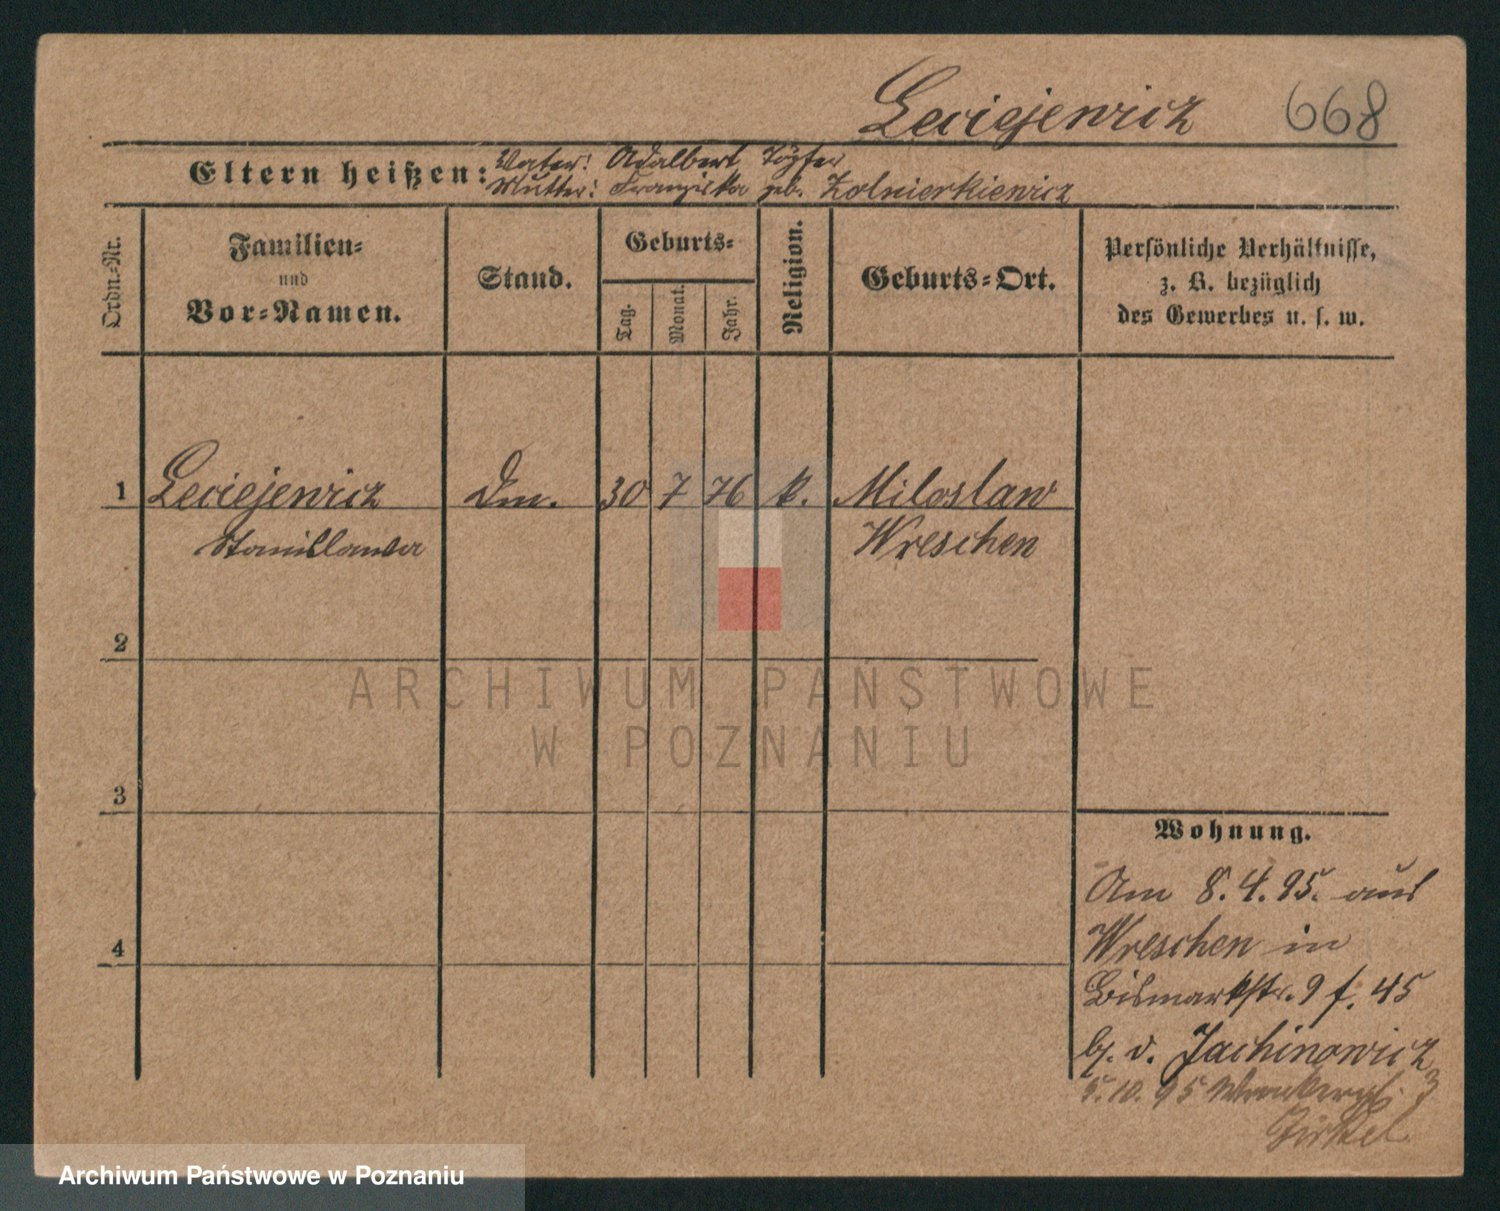 Leciejewicz 668
Eltern heißen: Vater: Adalbert Töpfer
Mutter: Franziska geb. Zolnierkiewicz
Ordn.-Nr.
Familien-
und
Vor-Namen.
Stand.
Geburts-
Tag.
Monat.
Jahr.
Religion.
Geburts-Ort.
Persönliche Verhältnisse,
z. B. bezüglich
des Gewerbes u. s. w.
1 Leciejewicz Dm. 30 7 76 k. Miloslaw
Stanislawa Wreschen
2
3
4
Wohnung.
Am 8.4.95. aus
Wreschen in
Bismarkstr. 9 f. 45
b. d. Jachinowicz
5.10.95 3
ARCHIWUM PAŃSTWOWE
W POZNANIU
Archiwum Państwowe w Poznaniu